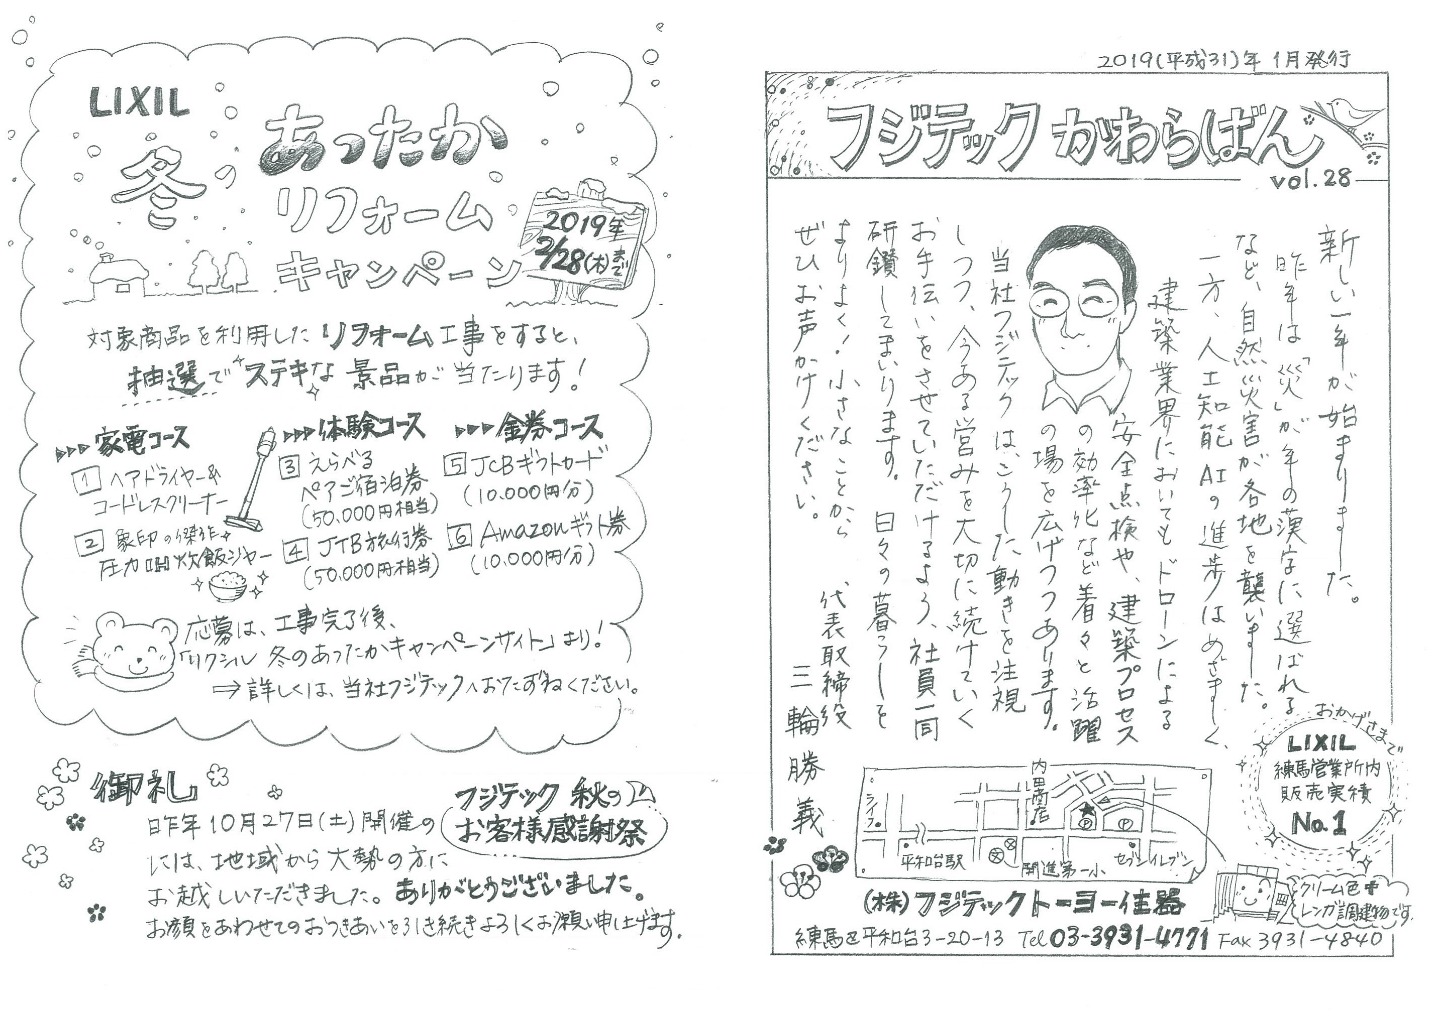 2019(平成31)年 1月発行
フジテック かわらばん
vol.28
新しい一年が始まりました。
昨年は「災」が年の漢字に選ばれる
など、自然災害が各地を襲いました。
一方、人工知能AIの進歩はめざましく、
建築業界においてもドローンによる
安全点検や、建築プロセス
の効率化など着々と活躍
の場を広げつつあります。
当社フジテックは、こうした動きを注視
しつつ、今ある営みを大切に続けていく
お手伝いをさせていただけるよう、社員一同
研鑽してまいります。 日々の暮らしを
よりよく！小さなことから
ぜひお声かけください。
代表取締役
三輪勝義
おかげさまで
LIXIL
練馬営業所内
販売実績
No.1
ライフ
内田商店
平和台駅
文
開進第一小
P
P
セブンイレブン
クリーム色+
レンガ調建物です。
(株)フジテックトーヨー住器
練馬区平和台3-20-13 Tel 03-3931-4771 Fax 3931-4840
LIXIL
冬の
あったか
リフォーム
キャンペーン
2019年
2/28(木)まで
対象商品を利用したリフォーム工事をすると、
抽選で"ステキな景品が当たります！
▷▷▷家電コース
1 ヘアドライヤー&
コードレスクリーナー
2 象印の傑作
圧力IH炊飯ジャー
▷▷▷体験コース
3 えらべる
ペアご宿泊券
(50.000円相当)
4 JTB旅行券
(50.000円相当)
▷▷▷金券コース
5 JCBギフトカード
(10.000円分)
6 Amazonギフト券
(10.000円分)
応募は、工事完了後、
「リクシル 冬のあったかキャンペーンサイト」より！
⇒詳しくは、当社フジテックへおたずねください。
御礼
昨年10月27日(土)開催の
フジテック 秋の
お客様感謝祭
には、地域から大勢の方に
お越しいただきました。ありがとうございました。
お顔をあわせてのおつきあいを引き続きよろしくお願い申し上げます。